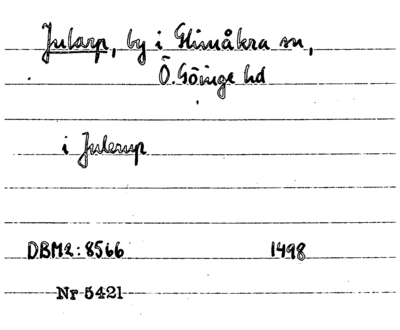 Jularp, by i Glimåkra sn,
Ö. Göinge hd
i Julerup
DBM2:8566 1498
Nr 5421